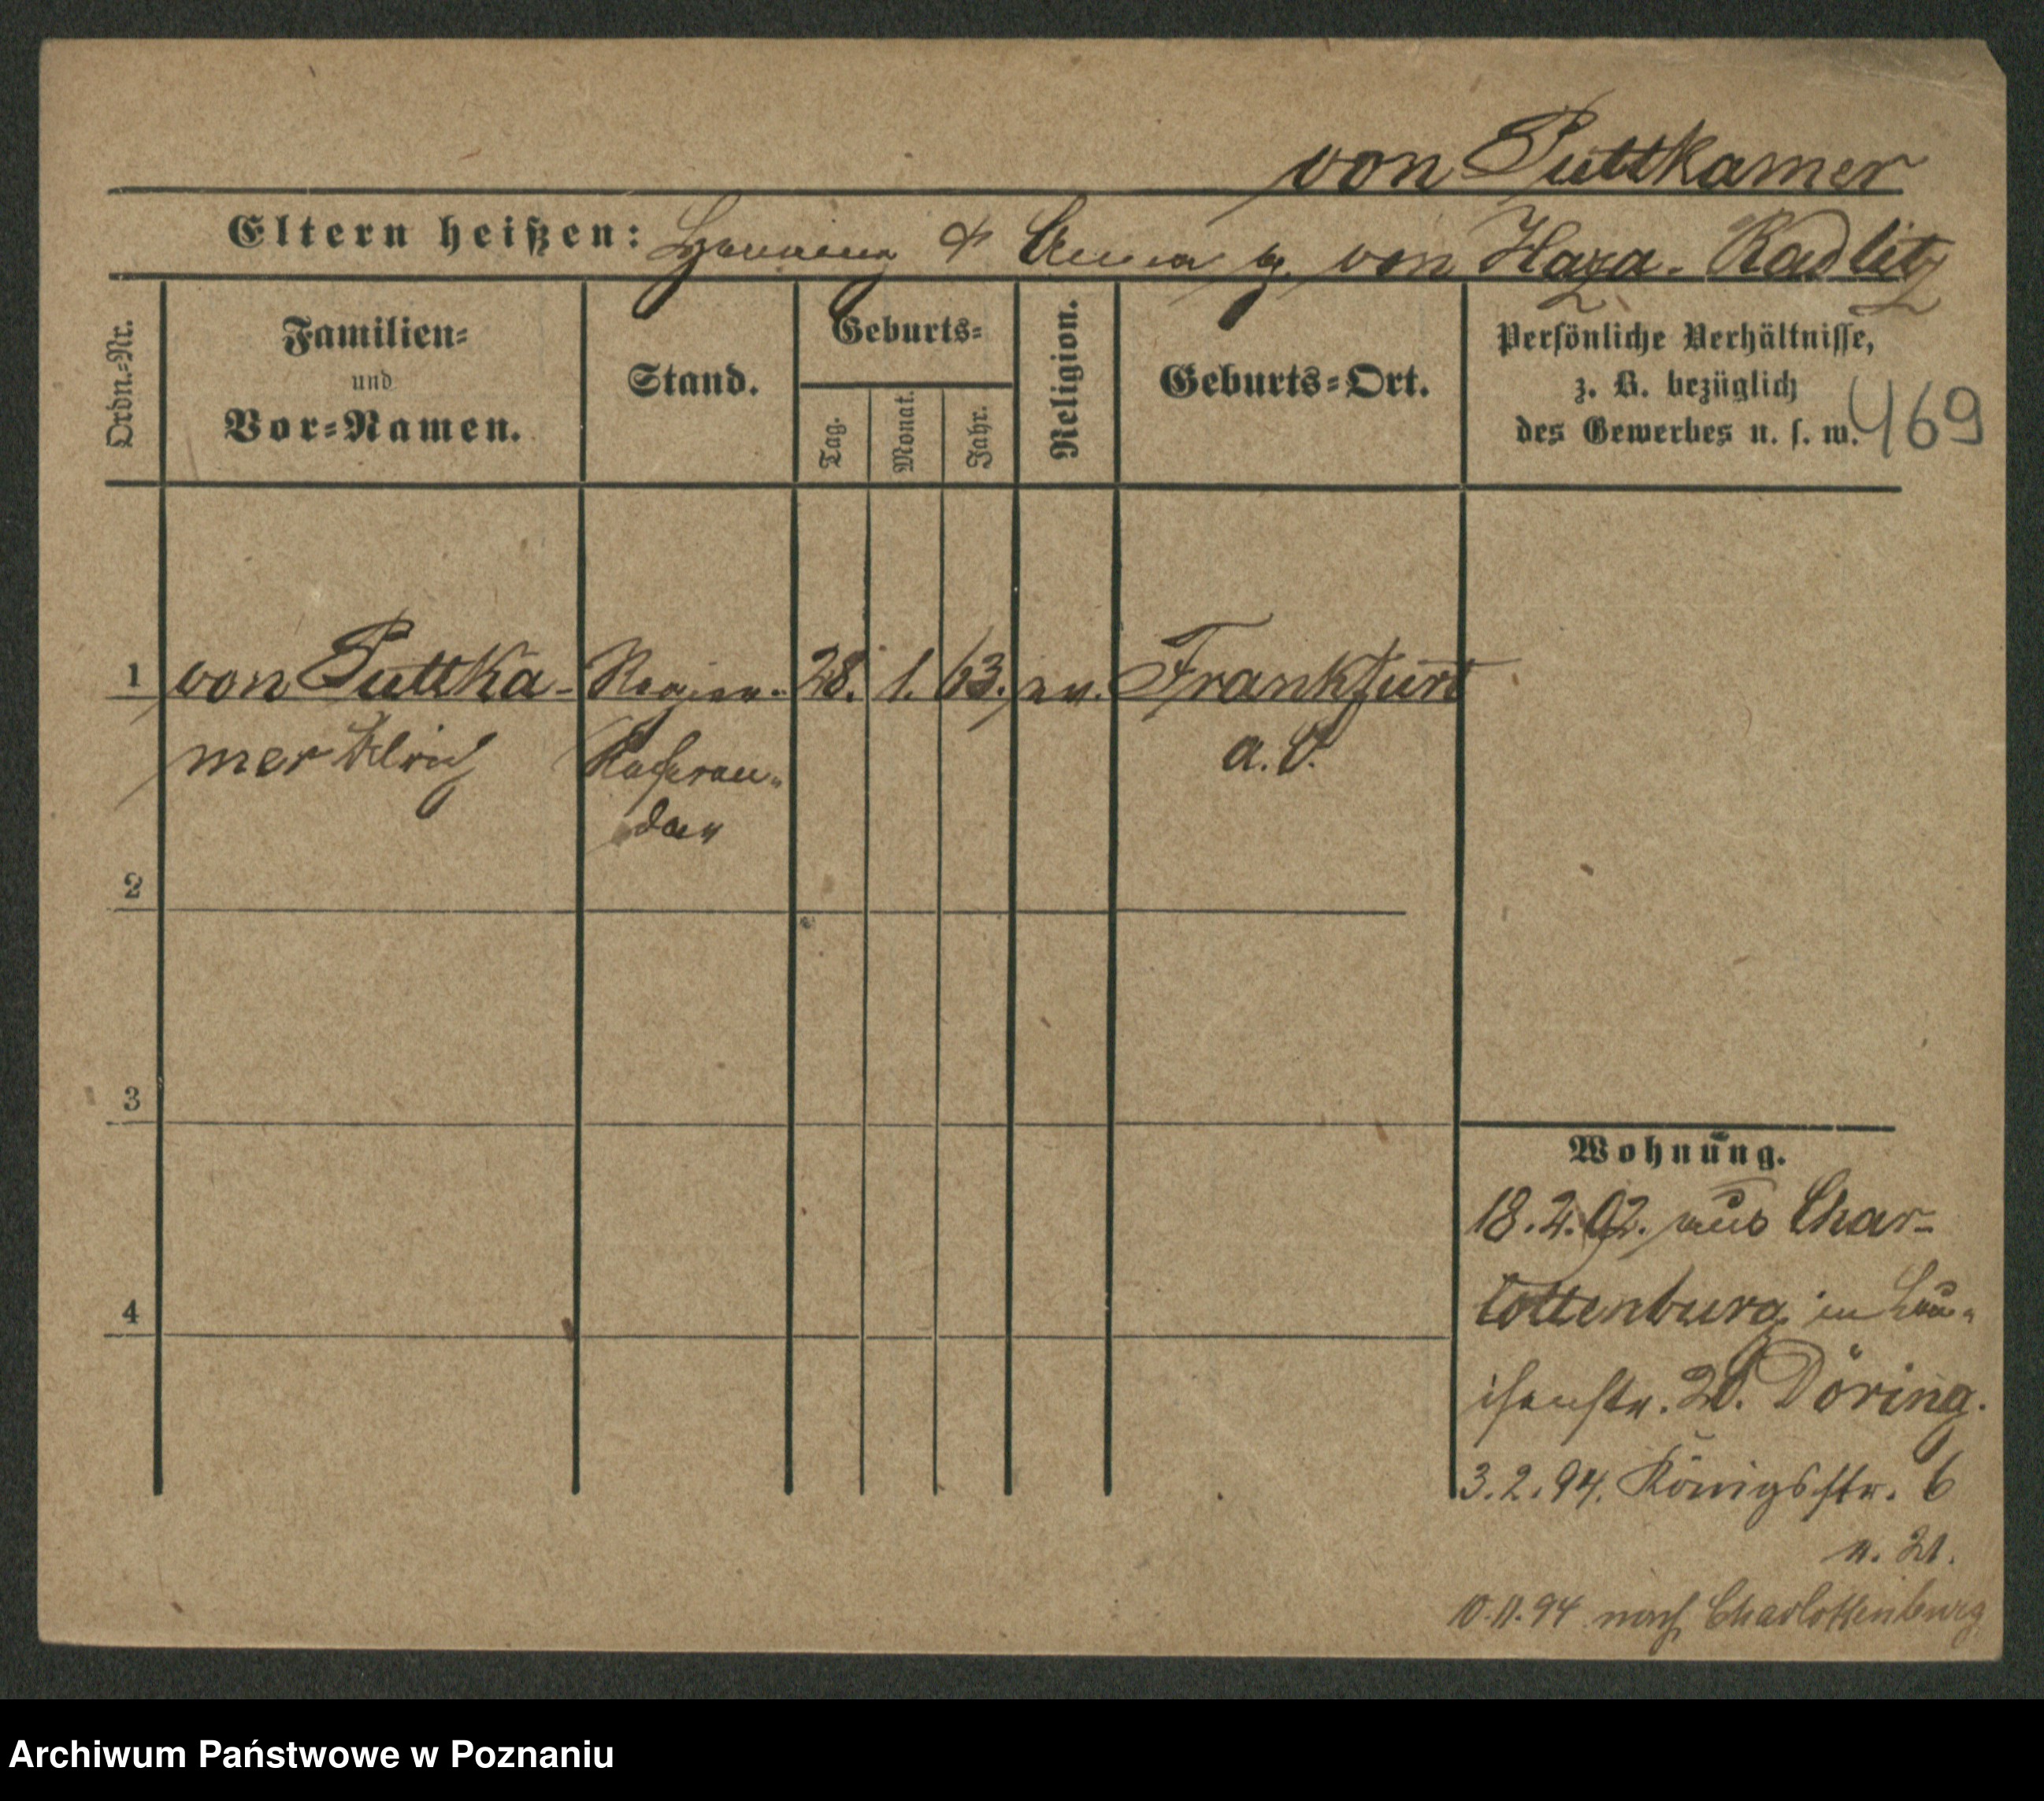 von Puttkamer
Eltern heißen: Henning & Anna g. von Haza-Radlitz
Ordn.-Nr.
Familien-
und
Vor-Namen.
Stand.
Geburts-
Tag.
Monat.
Jahr.
Religion.
Geburts-Ort.
Persönliche Verhältnisse,
z. B. bezüglich
des Gewerbes u. s. w.
469
1 von Puttka- Regier.- 28. 1. 63. ev. Frankfurt
mer Ulrich Referen- a. O.
dar
2
3
4
Wohnung.
18.2.92. aus Char-
lottenburg in Lou-
isenstr. 20. Döring.
3.2.94. Königsstr. 6
u. 21.
10.11.94 nach Charlottenburg
Archiwum Państwowe w Poznaniu